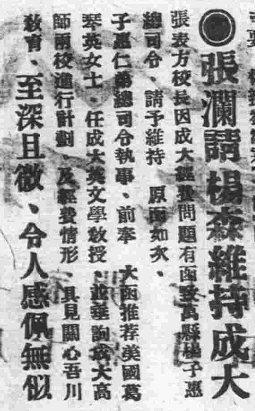 張瀾請楊森維持成大
張表方校長因成大經費問題有函致萬縣楊子惠
總司令、請予維持、原函如次、
子惠仁兄總司令執事、前奉 大函推荐英國葛
琴英女士、任成大英文學教授、並垂詢成大高
師兩校進行計劃、及經費情形、具見關心吾川
敎育、至深且微、令人感佩無似